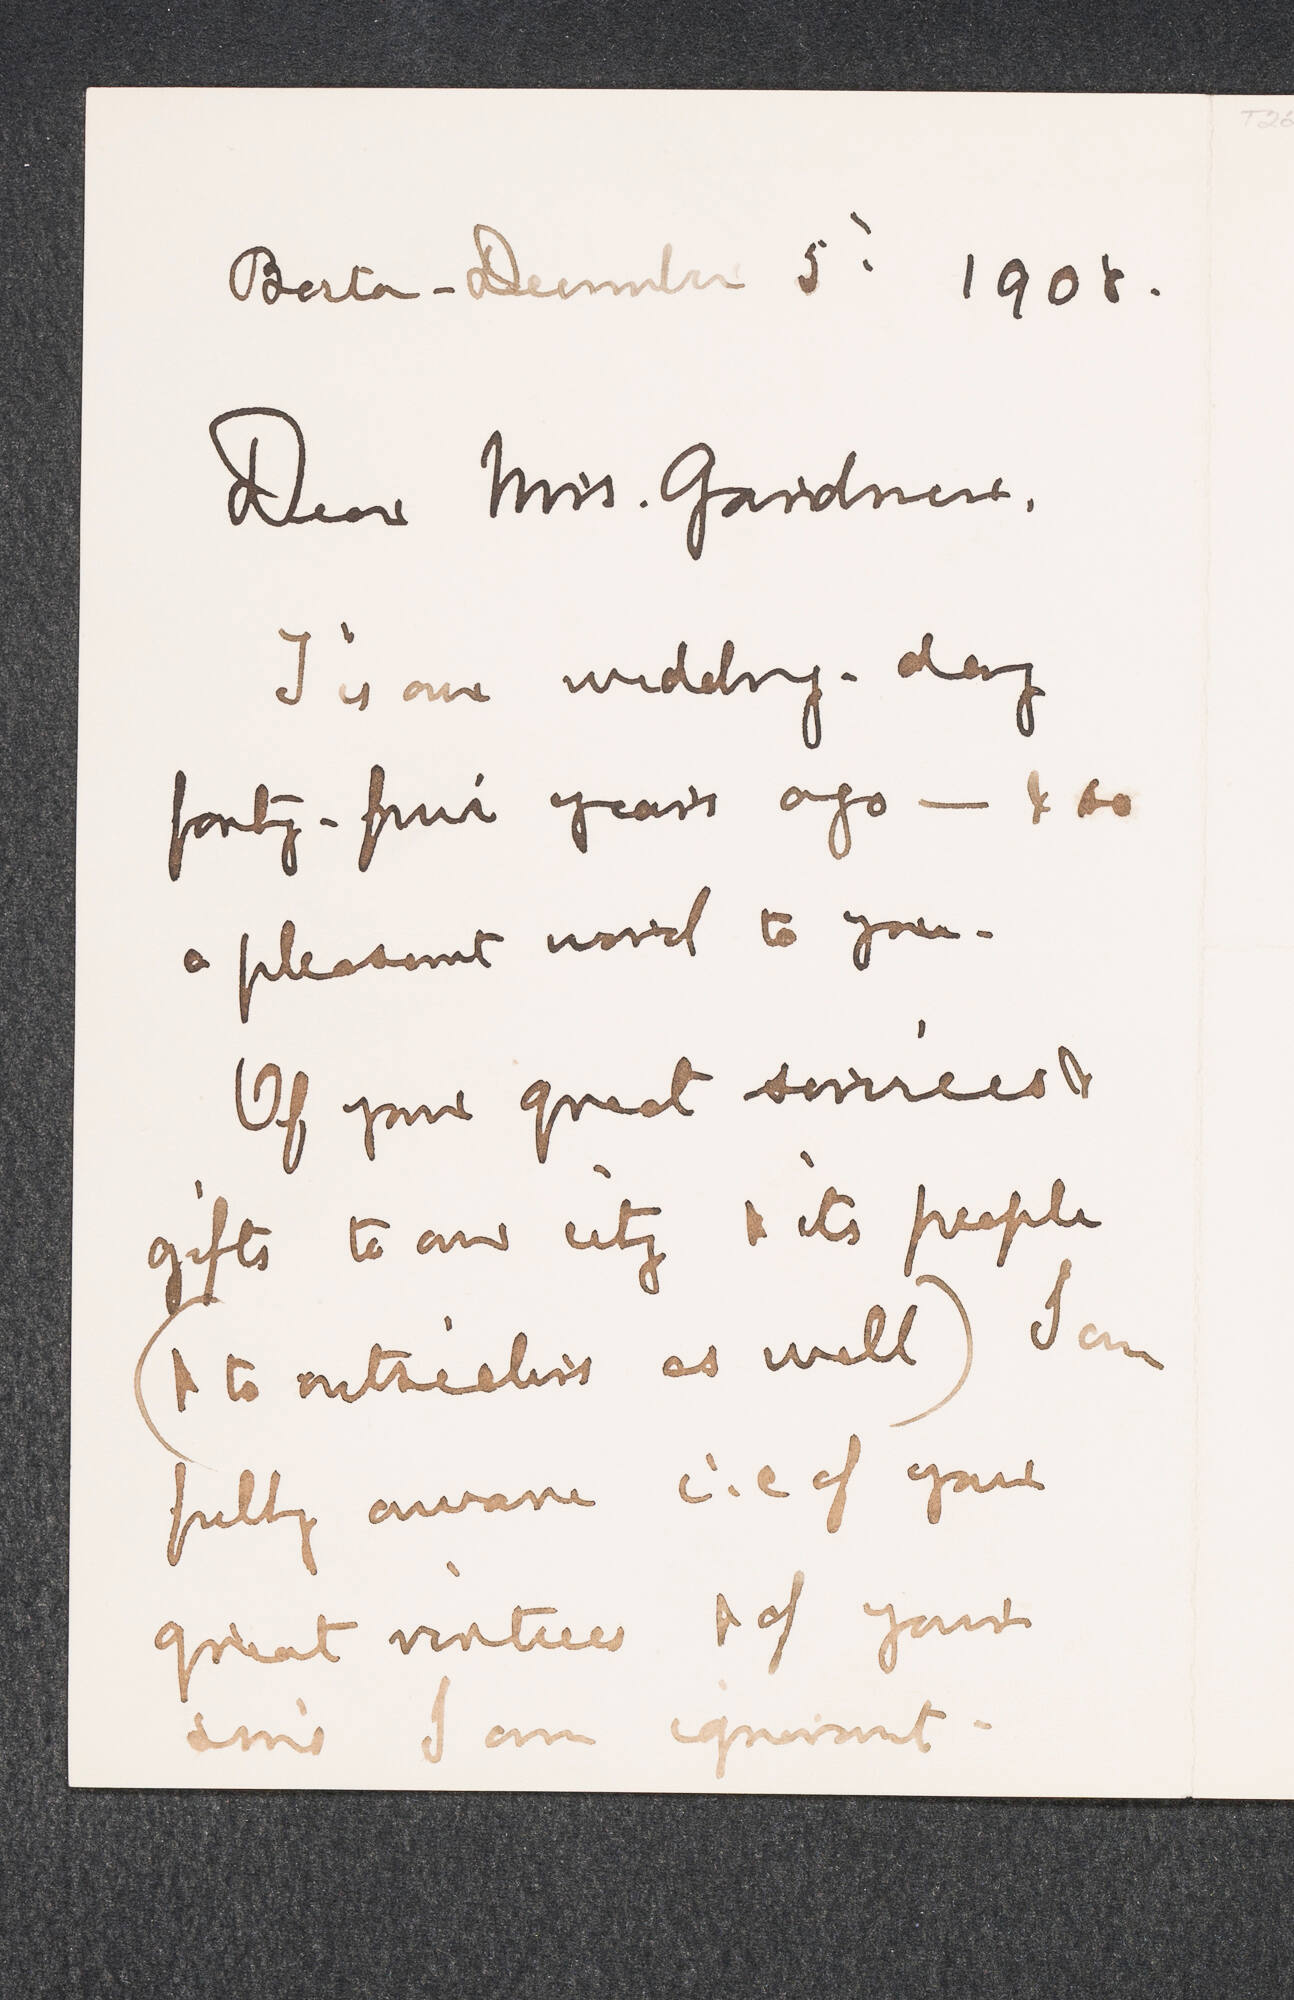 Boston - December 5: 1908.
Dear Mrs. Gardner.
T'is our wedding-day
forty-four years ago — & so
a pleasant word to you -
Of your great services &
gifts to our city & its people
(& to outsiders as well) I am
fully aware i.e of your
great virtues & of your
sins I am ignorant -